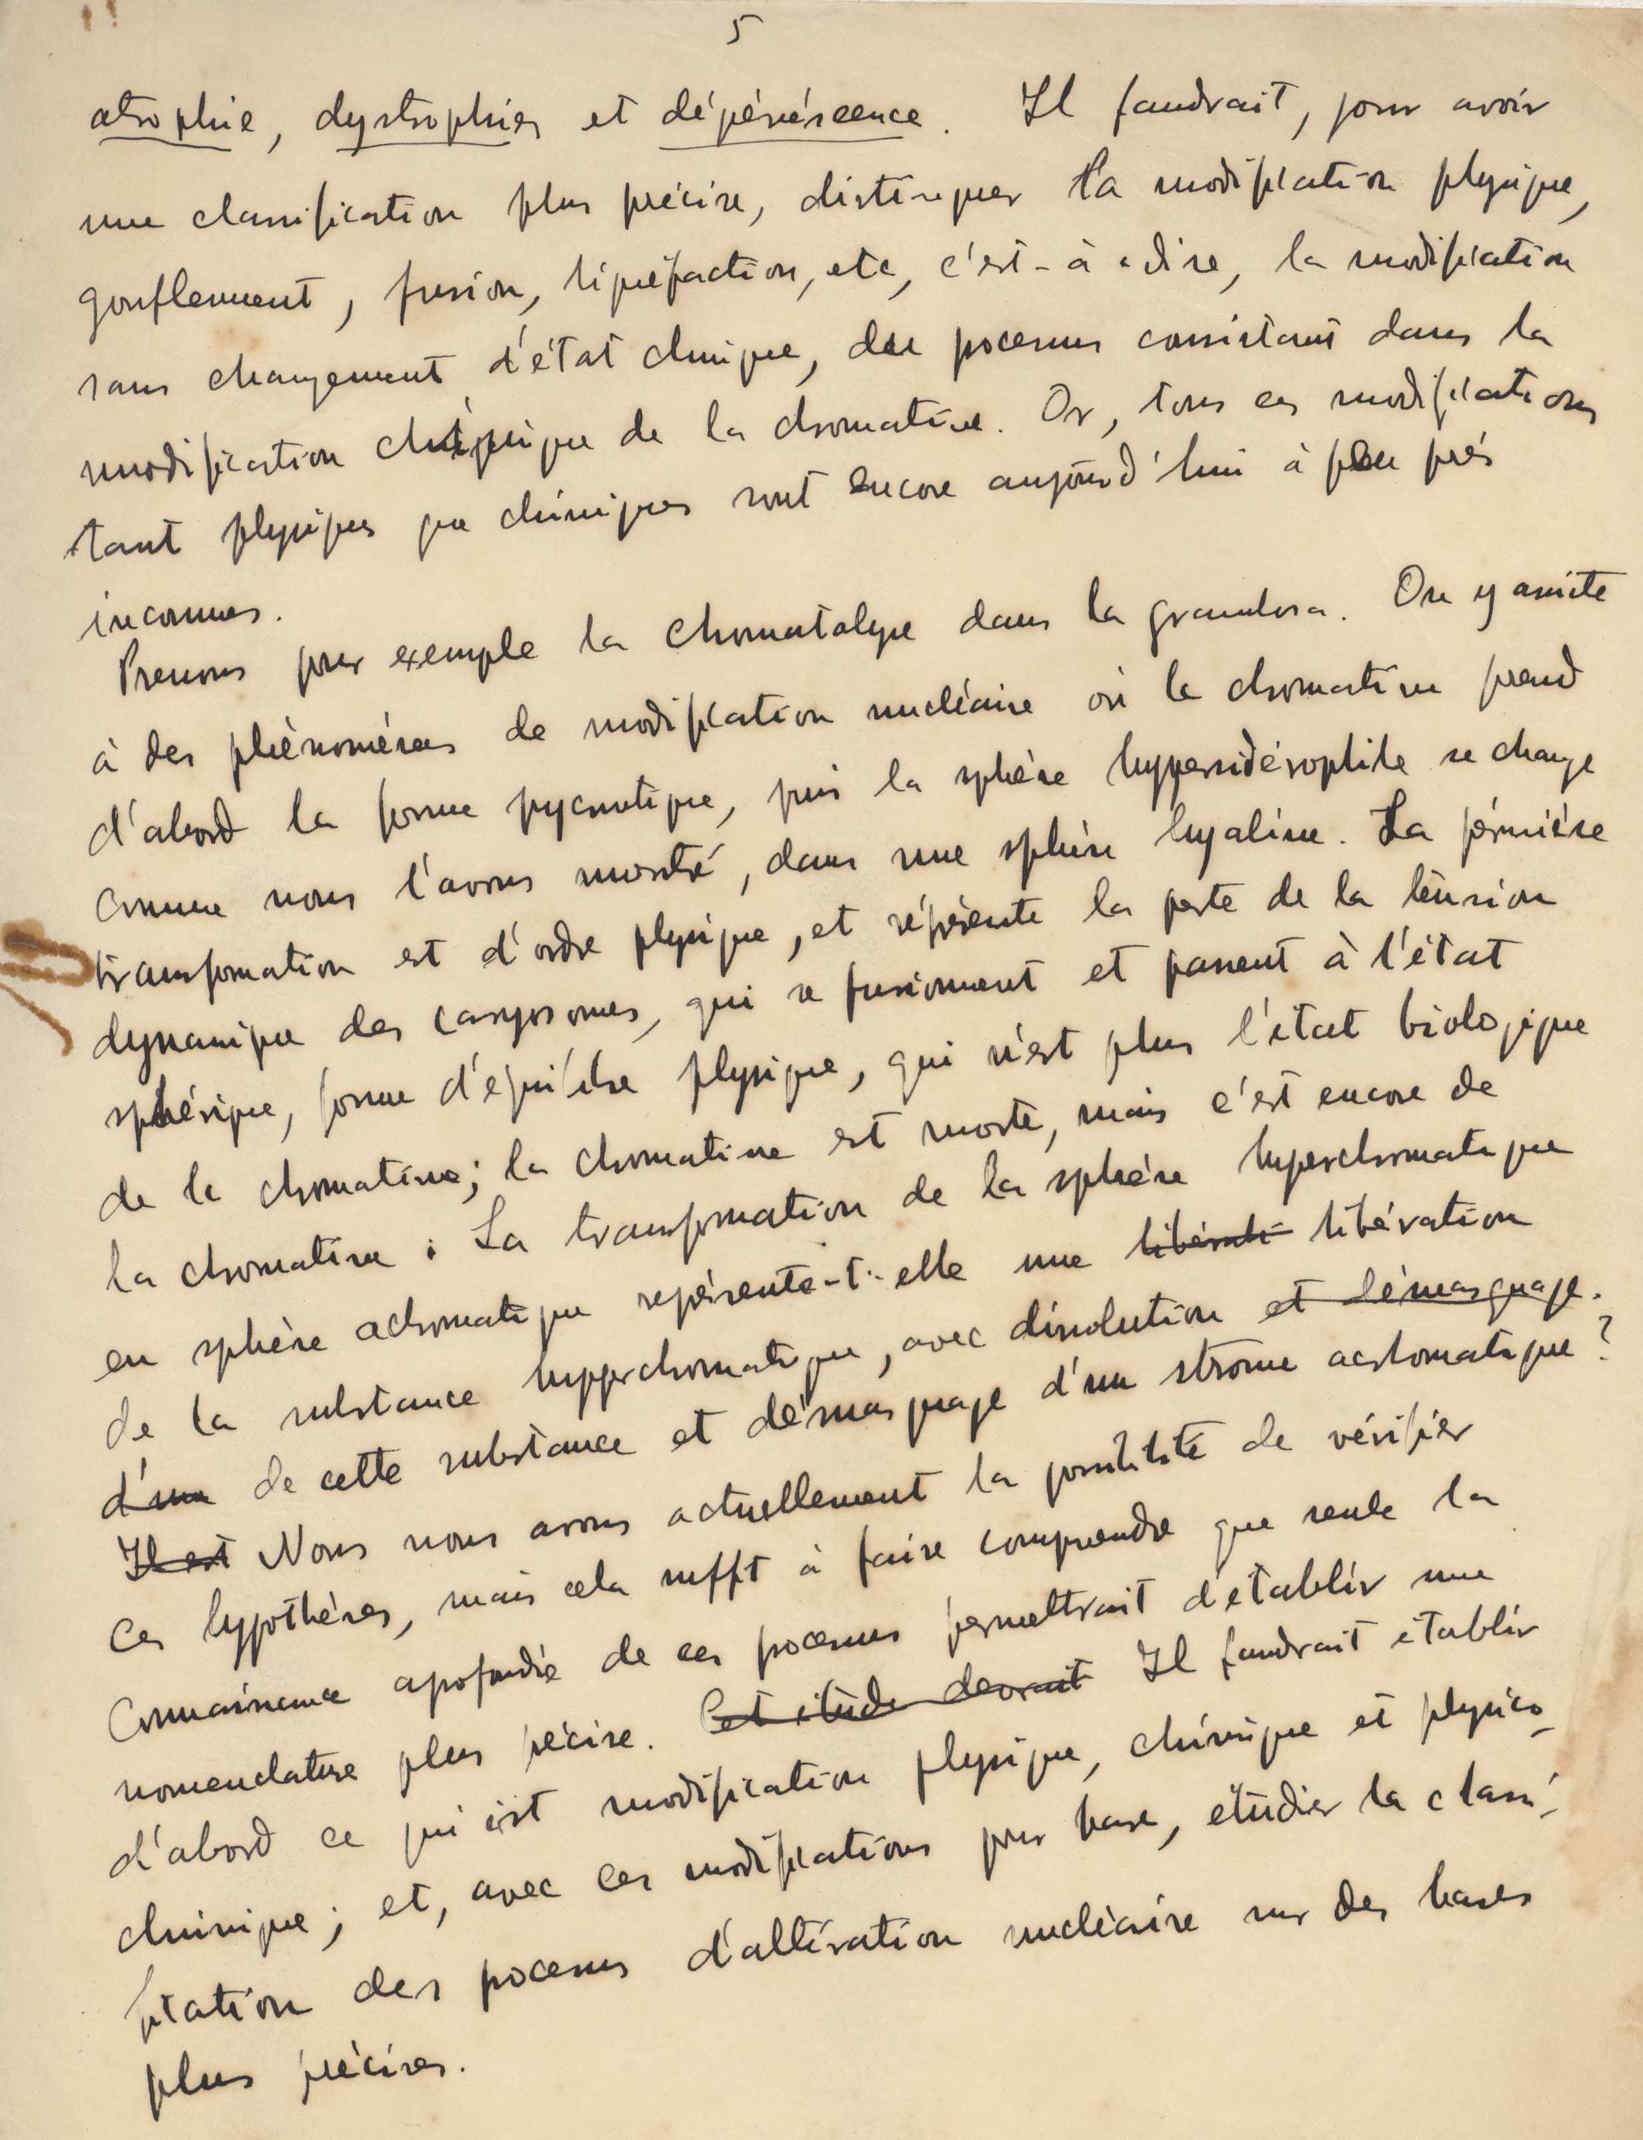 5
atrophie, dystrophies et dégénérescence. Il faudrait, pour avoir
une classification plus précise, distinguer la modification physique,
gonflement, fusion, liquéfaction, etc, c'est-à-dire, la modification
sans changement d'état chimique, des processus consistant dans la
modification chimique de la chromatine. Or, tous ces modifications
tant physiques que chimiques sont encore aujourd'hui à peu près
inconnues.
Prenons pour exemple la chromatolyse dans la granulosa. On y assiste
à des phénomènes de modification nucléaire où la chromatine prend
d'abord la forme pycnotique, puis la sphère hypersidérophile se change
comme nous l'avons montré, dans une sphère hyaline. La première
transformation est d'ordre physique, et représente la perte de la tension
dynamique des caryosomes, qui se fusionnent et passent à l'état
sphérique, forme d'équilibre physique, qui n'est plus l'état biologique
de la chromatine; la chromatine est morte, mais c'est encore de
la chromatine. La transformation de la sphère hyperchromatique
en sphère achromatique représente-t-elle une libérati libération
de la substance hyperchromatique, avec dissolution et démasquage.
d'une de cette substance et démasquage d'un stroma achromatique?
Il est Nous nous avons actuellement la possibilité de vérifier
ces hypothèses, mais cela suffit à faire comprendre que seule la
connaissance aprofondie de ces processus permettrait d'etablir une
nomenclature plus précise. Cet étude devrait Il faudrait établir
d'abord ce qui est modification physique, chimique et physico-
chimique; et, avec ces modifications pour base, étudier la classi-
fication des processus d'altération nucléaire sur des bases
plus précises.